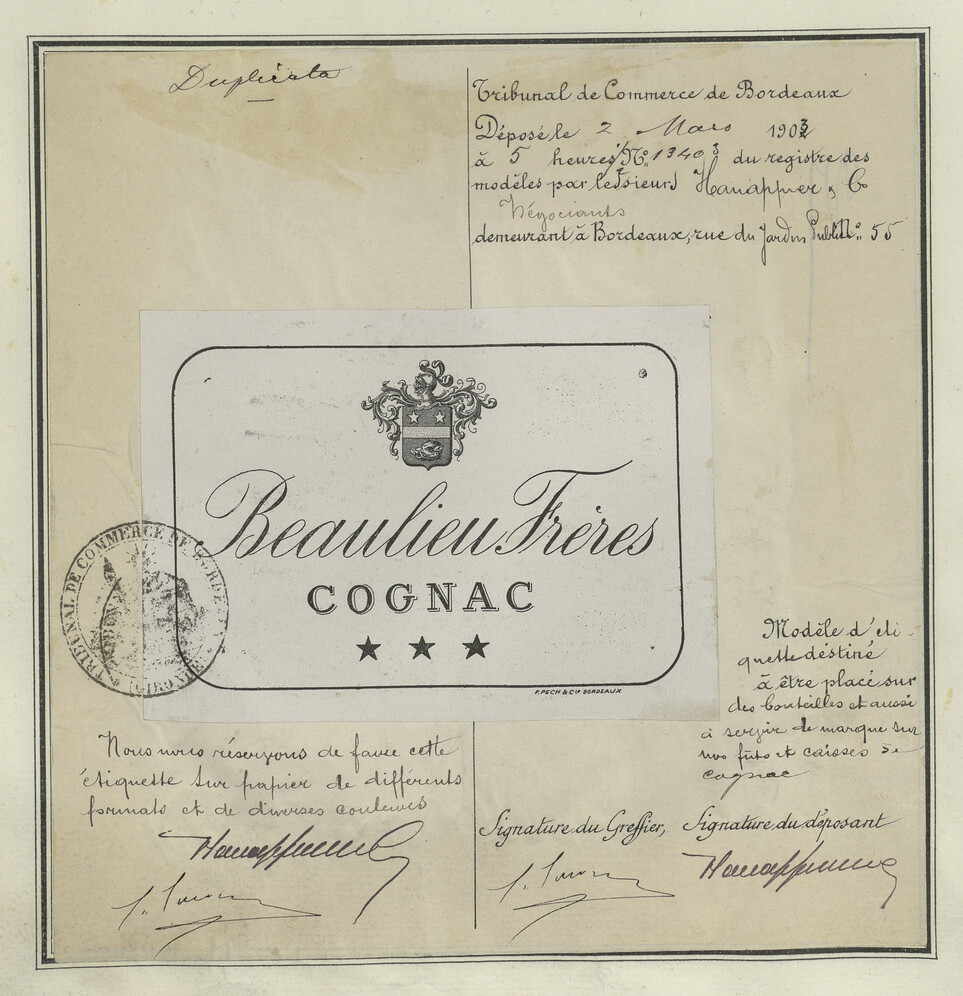 Duplicata
Tribunal de Commerce de Bordeaux
Déposé le 2 Mars 1903
à 5 heures, No. 13403 du registre des
modèles par les sieurs Hanappier & Co
Négociants
demeurant à Bordeaux, rue du Jardin Public No. 55
Beaulieu Frères
COGNAC
F. PECH & Cie BORDEAUX
TRIBUNAL DE COMMERCE DE BORDEAUX
(GIRONDE)
Modèle d'éti-
quette destiné
à être placé sur
des bouteilles et aussi
à servir de marque sur
nos fûts et caisses de
cognac
Nous nous réservons de faire cette
étiquette sur papier de différents
formats et de diverses couleurs
Signature du Greffier, Signature du déposant